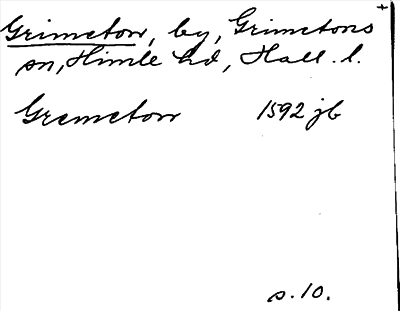 Grimeton, by, Grimetons
sn, Himle hd, Hall. l.
Gremeton 1592 jb
s. 10.